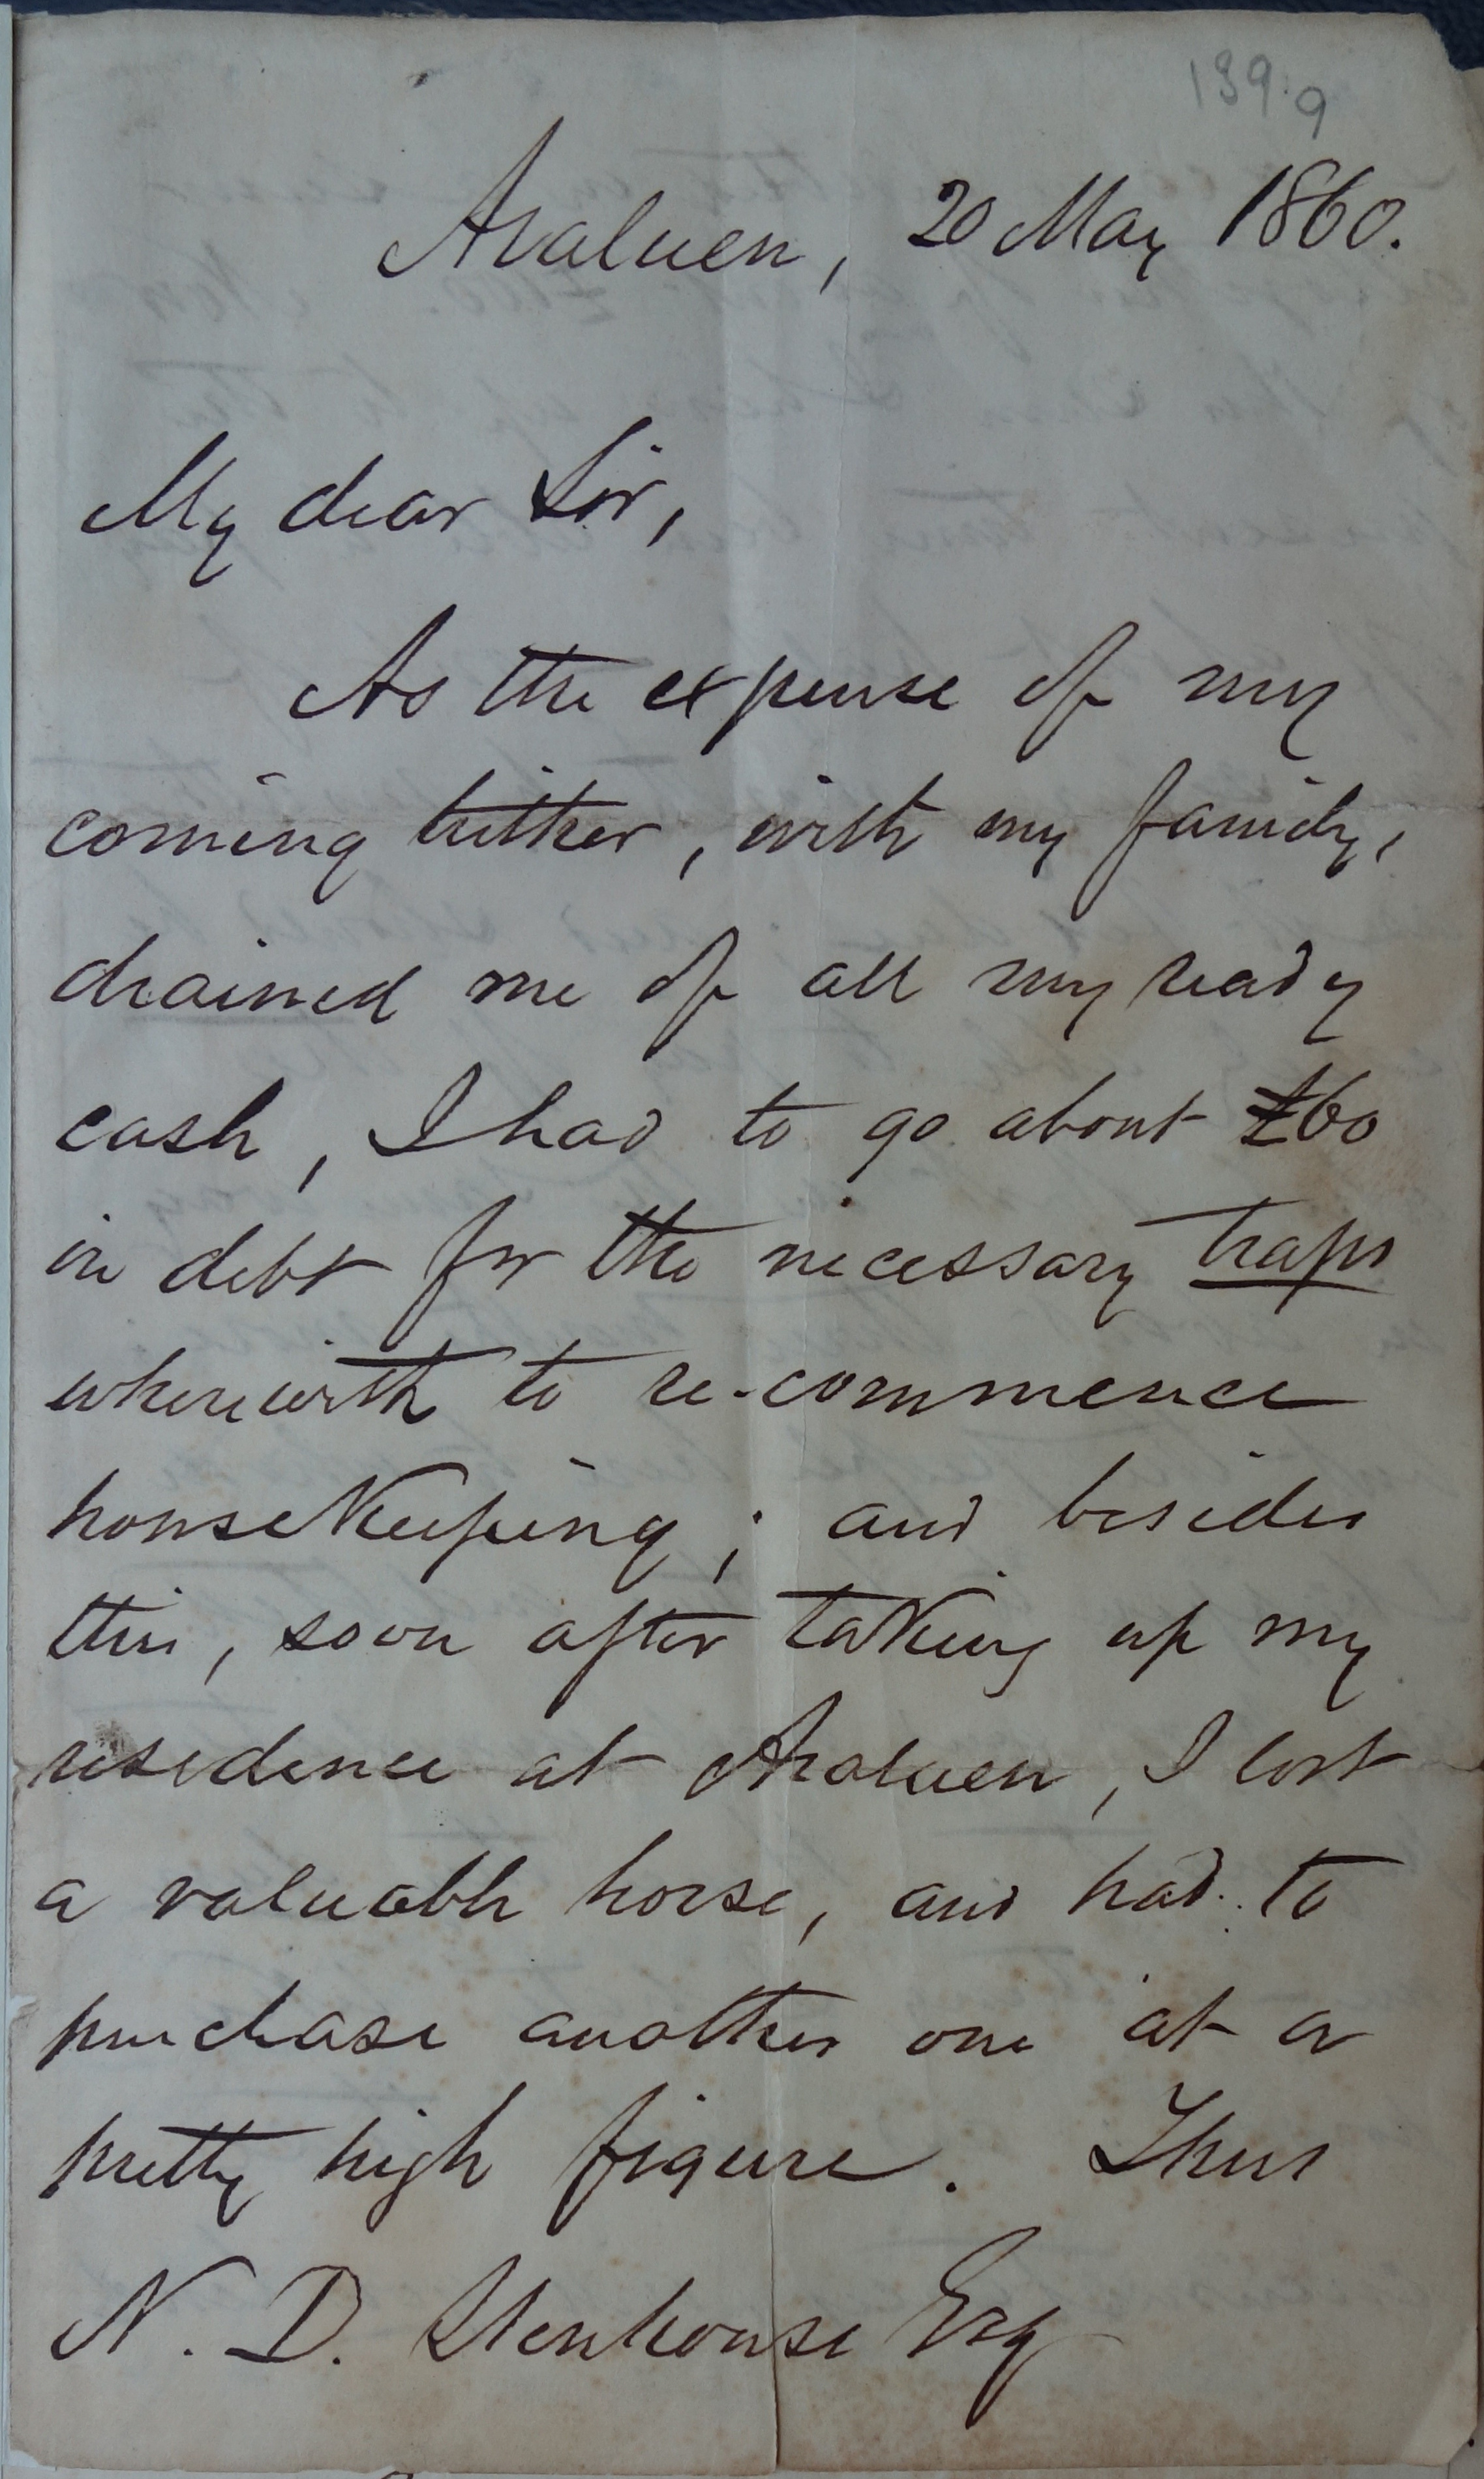 139.9
Araluen, 20 May 1860.
My dear Sir,
As the expense of my
coming hither, with my family,
drained me of all my ready
cash, I had to go about £60
in debt for the necessary traps
wherewith to re-commence
houseKeeping; and besides
this, soon after taKing up my
residence at Araluen, I lost
a valuable horse, and had to
purchase another one at a
pretty high figure. Thus
N. D. Stenhouse Esq